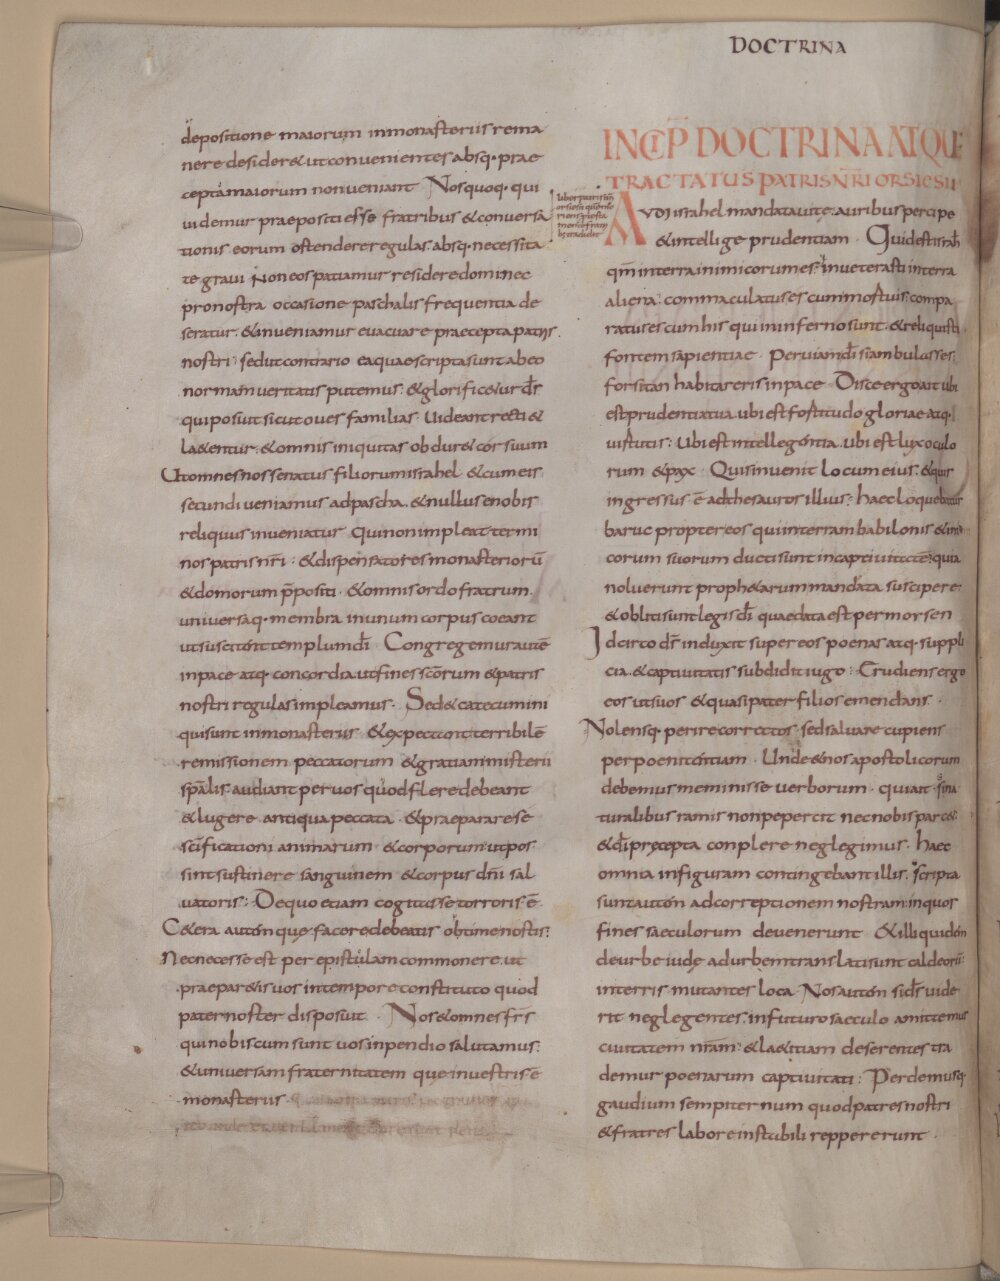 DOCTRINA
depositione maiorum inmonasteriis rema
nere desider&ut convenientes absq· prae
cepta maiorum nonveniant Nosquoq· qui
videmur praepositi esse fratribus &conversa
tionis eorum ostendere regulas· absq· necessita
te gravi Non eos patiamur residere dominec
pro nostra occasione paschalis frequentia de
seratur· &inveniamur evacuare praecepta patris
nostri· sed ut contrario ea quae scripta sunt ab eo
normam veritatis putemus· &glorificetur d̄s
qui posuit sicut oves familias· Videant recti &
l&entur· &omnis iniquitas obdur& os suum
Ut omnes nos senatus filiorum israhel &cum eis
secundi veniamus ad pascha· &nullus e nobis
reliquus inveniatur qui non impleat termi
nos patris n̄ri· &dispensatores monasteriorū
&domorum p̄positi· &omnis ordo fratrum·
universaq· membra in unum corpus coeant
ut suscitent templum d̄i· Congregemur autē
in pace atq· concordia ut fines sc̄orum &patris
nostri regulas impleamus· Sed & catecumini
qui sunt in monasteriis· &expectant terribilē
remissionem peccatorum &gratiam misterii
sp̄alis· audiant per vos quod flere debeant
&lugere antiqua peccata· &praeparare se
sc̄ificationi animarum &corporum· ut pos
sint sustinere sanguinem &corpus dn̄i sal
vatoris· De quo etiam cogitasse terroris ē·
C&era autem que facere debeatis obtime nostis·
Nec necesse est per epistulam commonere ut
praeparetis vos in tempore constituto quod
pater noster disposuit· Nos &omnes fr̄s
qui nobiscum sunt vos inpendio salutamus·
&universam fraternitatem que in vestris ē
monasteriis·
INCIP̄ DOCTRINA ATQUE
TRACTATUS PATRIS N̄RI ORSIESII
liber patris n̄ri
AVDI israhel mandata vite· auribus percipe
&intellige prudentiam· Quid est israh̄
qm̄ in terra inimicorum es· inveterasti in terra
aliena· commaculatus es cum mortuis· compa
ratus es cum his qui in inferno sunt· &reliquisti
fontem sapientiae· Per viam d̄i si ambulasses·
forsitan habitareris in pace· Disce ergo ait ubi
est prudentia tua· ubi est fortitudo gloriae atq·
virtutis· Ubi est intellegentia· ubi est lux oculo
rum &pax· Quis invenit locum eius· &quis
ingressus ē ad thesauros illius· haec loquebatur
baruc propter eos qui in terram babilonis &inimi
corum suorum ducti sunt in captivitatē· quia
noluerunt proph&arum mandata suscipere
&obliti sunt legis d̄i quae data est per morsen
Idcirco d̄s induxit super eos poenas atq· suppli
cia· &captivitatis subdidit iugo· Erudiens ergo
eos ut suos &quasi pater filios emendans·
Nolensq· perire correctos· sed salvare cupiens
per poenitentiam· Unde &nos apostolicorum
debemus meminisse verborum· qui ait· si na
turalibus ramis non pepercit nec nobis parc&·
&d̄i precepta conplere neglegimus· haec
omnia in figuram contingebant illis· scripta
sunt autem ad correptionem nostram· in quos
fines saeculorum devenerunt &illi quidem
de urbe iude ad urbem translati sunt caldeorū
in terris mutantes loca· Nos autem si d̄s vide
rit neglegentes· in futuro saeculo amittemus
civitatem n̄ram· &laetitiam deserentes tra
demur poenarum captivitati· Perdemusq·
gaudium sempiternum quod patres nostri
&fratres labore instabili reppererunt·